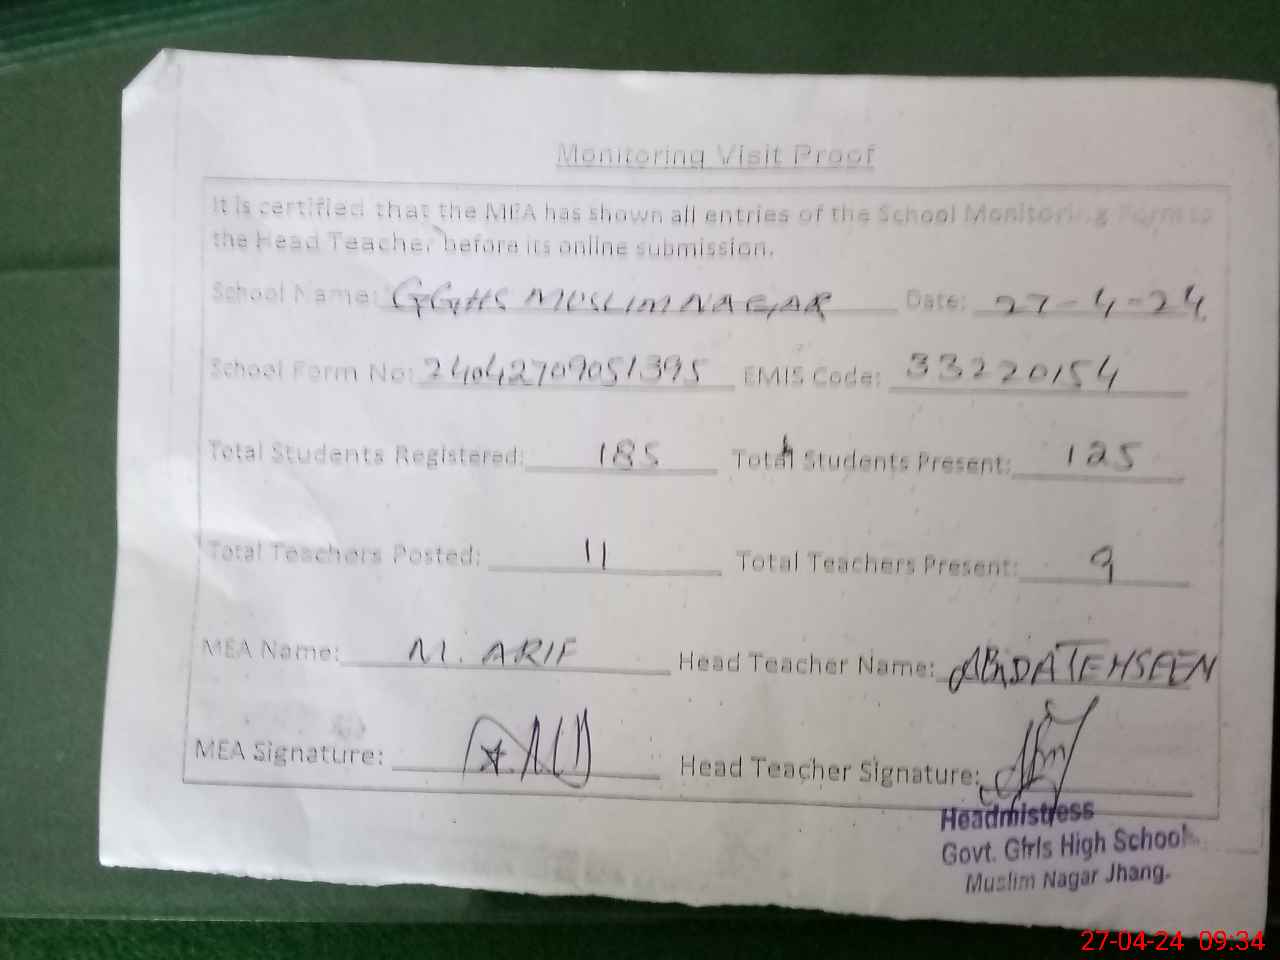 Monitoring Visit Proof
It is certified that the MEA has shown all entries of the School Monitoring Form to
the Head Teacher before its online submission.
School Name: GGHS MUSLIM NAGAR Date: 27-4-24
School Form No: 24042709051395 EMIS Code: 33220154
Total Students Registered: 185 Total Students Present: 125
Total Teachers Posted: 11 Total Teachers Present: 9
MEA Name: M. ARIF Head Teacher Name: ABIDA TEHSEEN
MEA Signature: Head Teacher Signature:
Headmistress
Govt. Girls High School
Muslim Nagar Jhang.
27-04-24 09:34